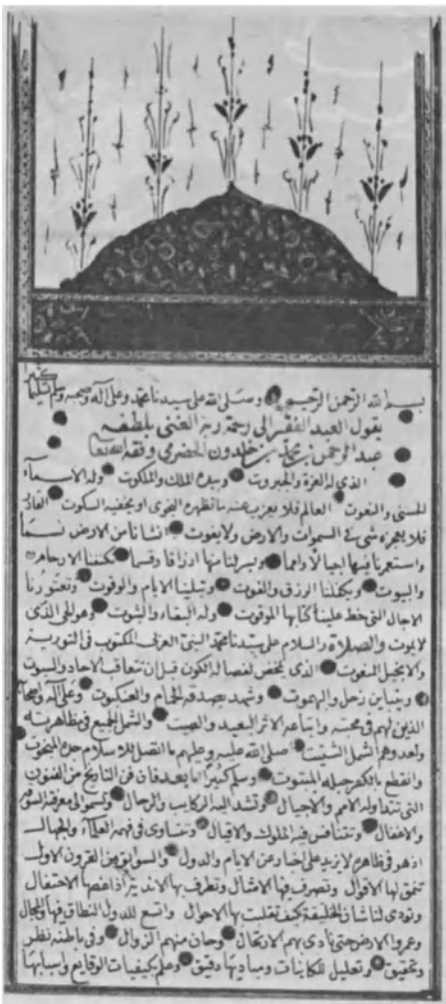 بسم الله الرحمن الرحيم وصلى الله على سيدنا محمد وعلى آله وصحبه وسلم تسليما
يقول العبد الفقير الى رحمة ربه الغني بلطفه
عبد الرحمن بن محمد بن خلدون الحضرمي وفقه الله تعالى
الذي له العزة والجبروت وبيده الملك والملكوت وله الاسماء
الحسنى والنعوت العالم فلا يعزب عنه ما تظهره النجوى او يخفيه السكوت القادر
فلا يعجزه شي في السموات والارض ولا يفوت انشانا من الارض نسما
واستعمرنا فيها اجيالا وامما ويسر لنا منها ارزاقا وقسما تكنفنا الارحام
والبيوت ويكفلنا الرزق والقوت وتبلينا الايام والوقوت وتعتورنا
الاجال التي خط علينا كتابها الموقوت وله البقاء والثبوت وهو الحي الذي
لا يموت والصلاة والسلام على سيدنا محمد النبي العربي المكتوب في التورية
والانجيل المنعوت الذي تمخض لفصاله الكون قبل ان تتعاقب الاحاد والسبوت
ويتباين زحل واليهموت وشهد بصدقه الحمام والعنكبوت وعلى آله واصحابه
الذين لهم في محبته واتباعه الاثر البعيد والصيت والشمل الجميع في مظاهرته
ولعدوهم الشمل الشتيت صلى الله عليه وعليهم ما اتصل للاسلام جده المبخوت
وانقطع بالكفر حبله المبتوت وسلم كثيرا اما بعد فان فن التاريخ من الفنون
التي تتداوله الامم والاجيال وتشد اليه الركايب والرحال وتسموا لى معرفته السوقة
والاغفال وتتنافس فيه الملوك والاقيال وتتساوى في فهمه العلماء والجهال
اذ هو في ظاهره لا يزيد على اخبار عن الايام والدول والسوابق من القرون الاول
تنمق لها الاقوال وتصرف فيها الامثال وتطرف بها الاندية اذا غصها الاحتفال
وتودي لنا شان الخليقة كيف تقلبت بها الاحوال واتسع للدول النطاق فيها والمجال
وعمروا الارض حتى نادى بهم الارتحال وحان منهم الزوال وفي باطنه نظر
وتحقيق وتعليل للكاينات ومباديها دقيق وعلم بكيفيات الوقايع واسبابها